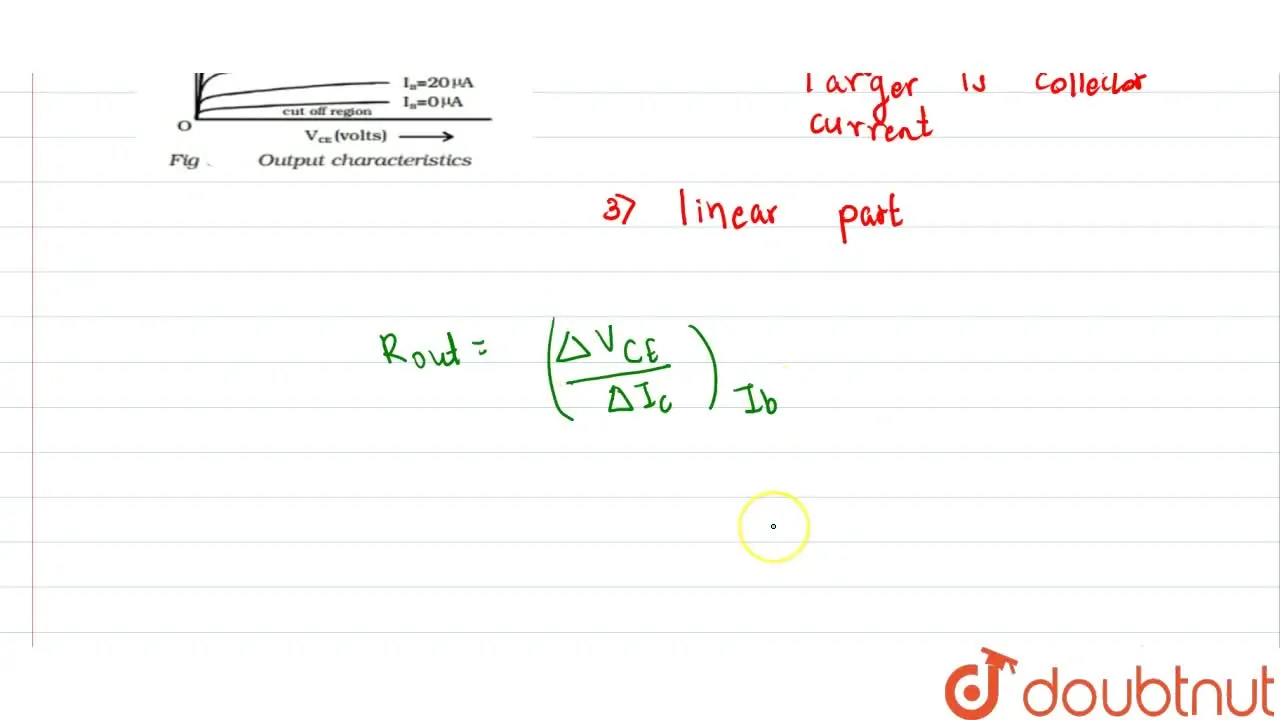 I_B=20μA
I_B=0μA
cut off region
O
V_CE (volts)
Fig . Output characteristics
larger is collector
current
3) linear part
Rout = (ΔV_CE / ΔI_C) I_b
doubtnut